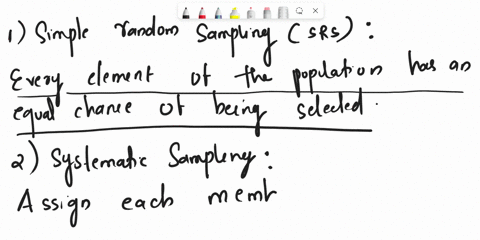 1) Simple random Sampling (SRS) :
Every element of the population has an
equal chance of being selected.
2) Systematic Sampling :
Assign each memb